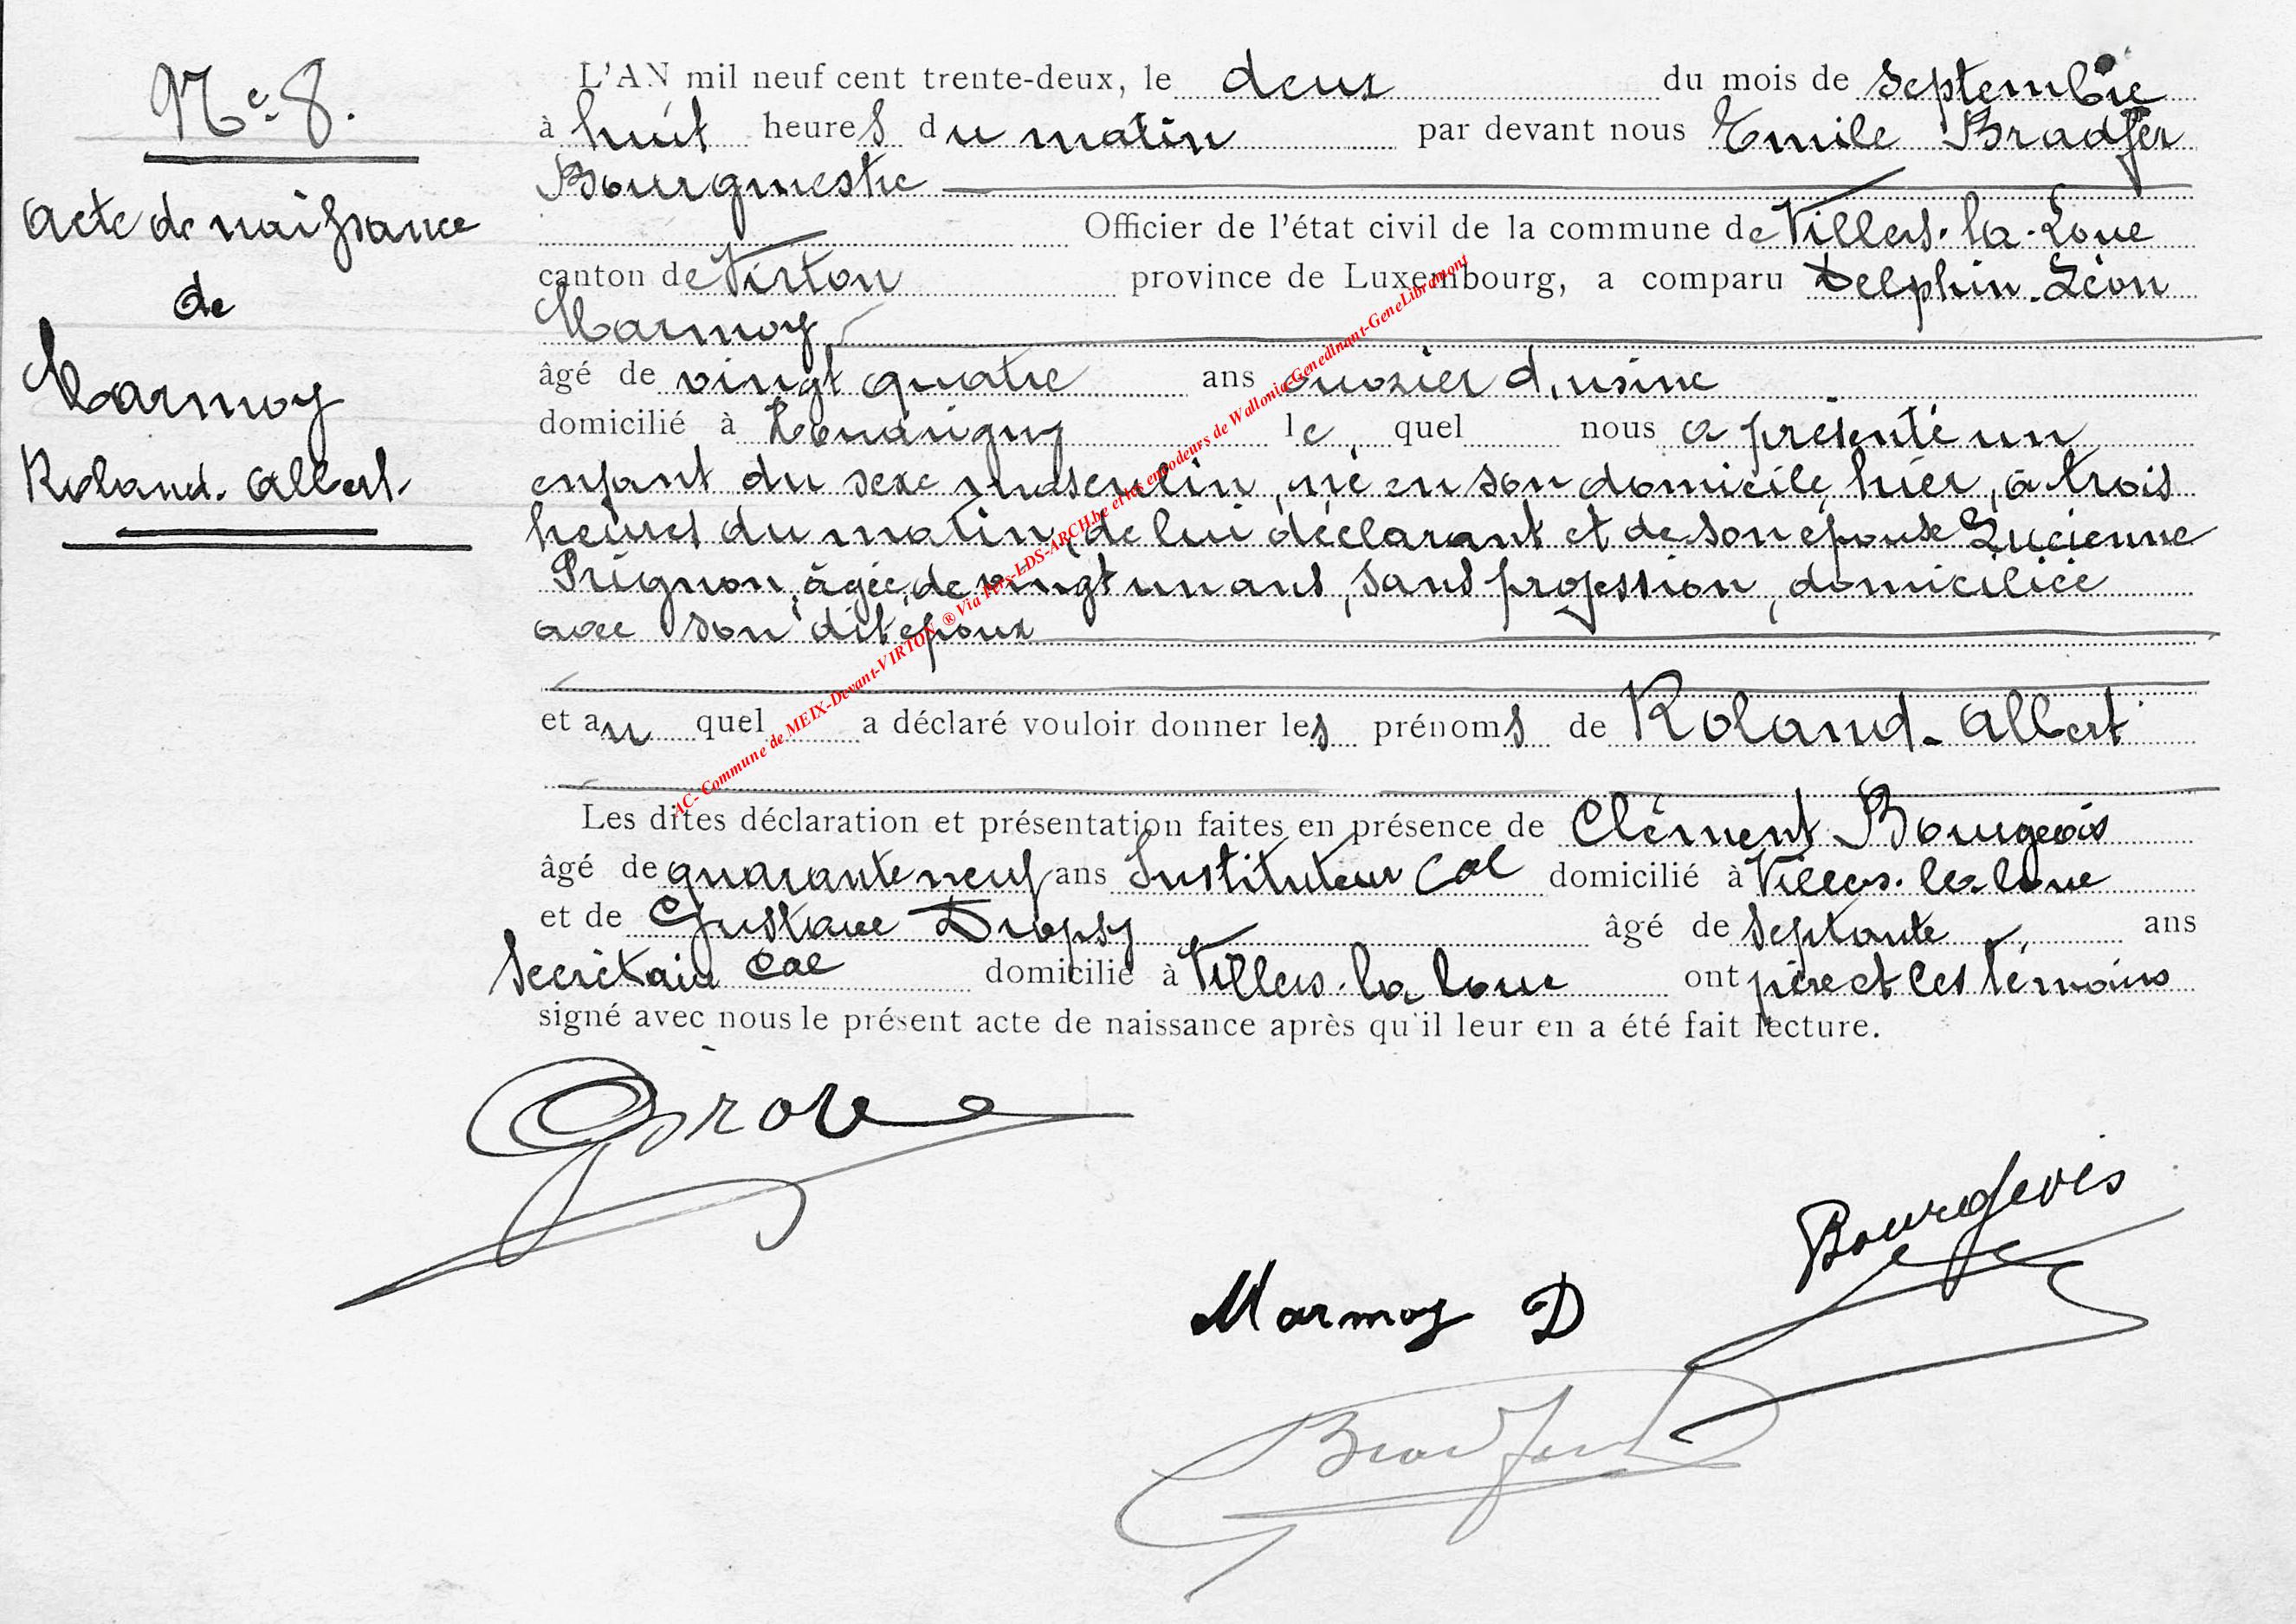 Nº 8.
Acte de naissance
de
Marmoy
Roland-Albert
L'AN mil neuf cent trente-deux, le deux du mois de septembre
à huit heures du matin par devant nous Emile Bradfer
Bourgmestre
Officier de l'état civil de la commune de Villers-la-Loue
canton de Virton province de Luxembourg, a comparu Delphin-Léon
Marmoy
âgé de vingt quatre ans ouvrier d'usine
domicilié à Houdrigny le quel nous a présenté un
enfant du sexe masculin, né en son domicile hier, à trois
heures du matin, de lui déclarant et de son épouse Lucienne
Prignon, âgée de vingt un ans, sans profession, domiciliée
avec son dit époux
et au quel a déclaré vouloir donner les prénoms de Roland-Albert
Les dites déclaration et présentation faites en présence de Clément Bourgeois
âgé de quarante neuf ans Instituteur Cal domicilié à Villers-la-loue
et de Gustave Dropsy âgé de septante ans
Secrétaire Cal domicilié à Villers-la loue ont père et les témoins
signé avec nous le présent acte de naissance après qu'il leur en a été fait lecture.
Bourgeois
Marmoy D
Bradfer
AC- Commune de MEIX-Devant-VIRTON ® Via Pers-LDS-ARCH.be et les encodeurs de Wallonia-Genedinant-GeneLibramont